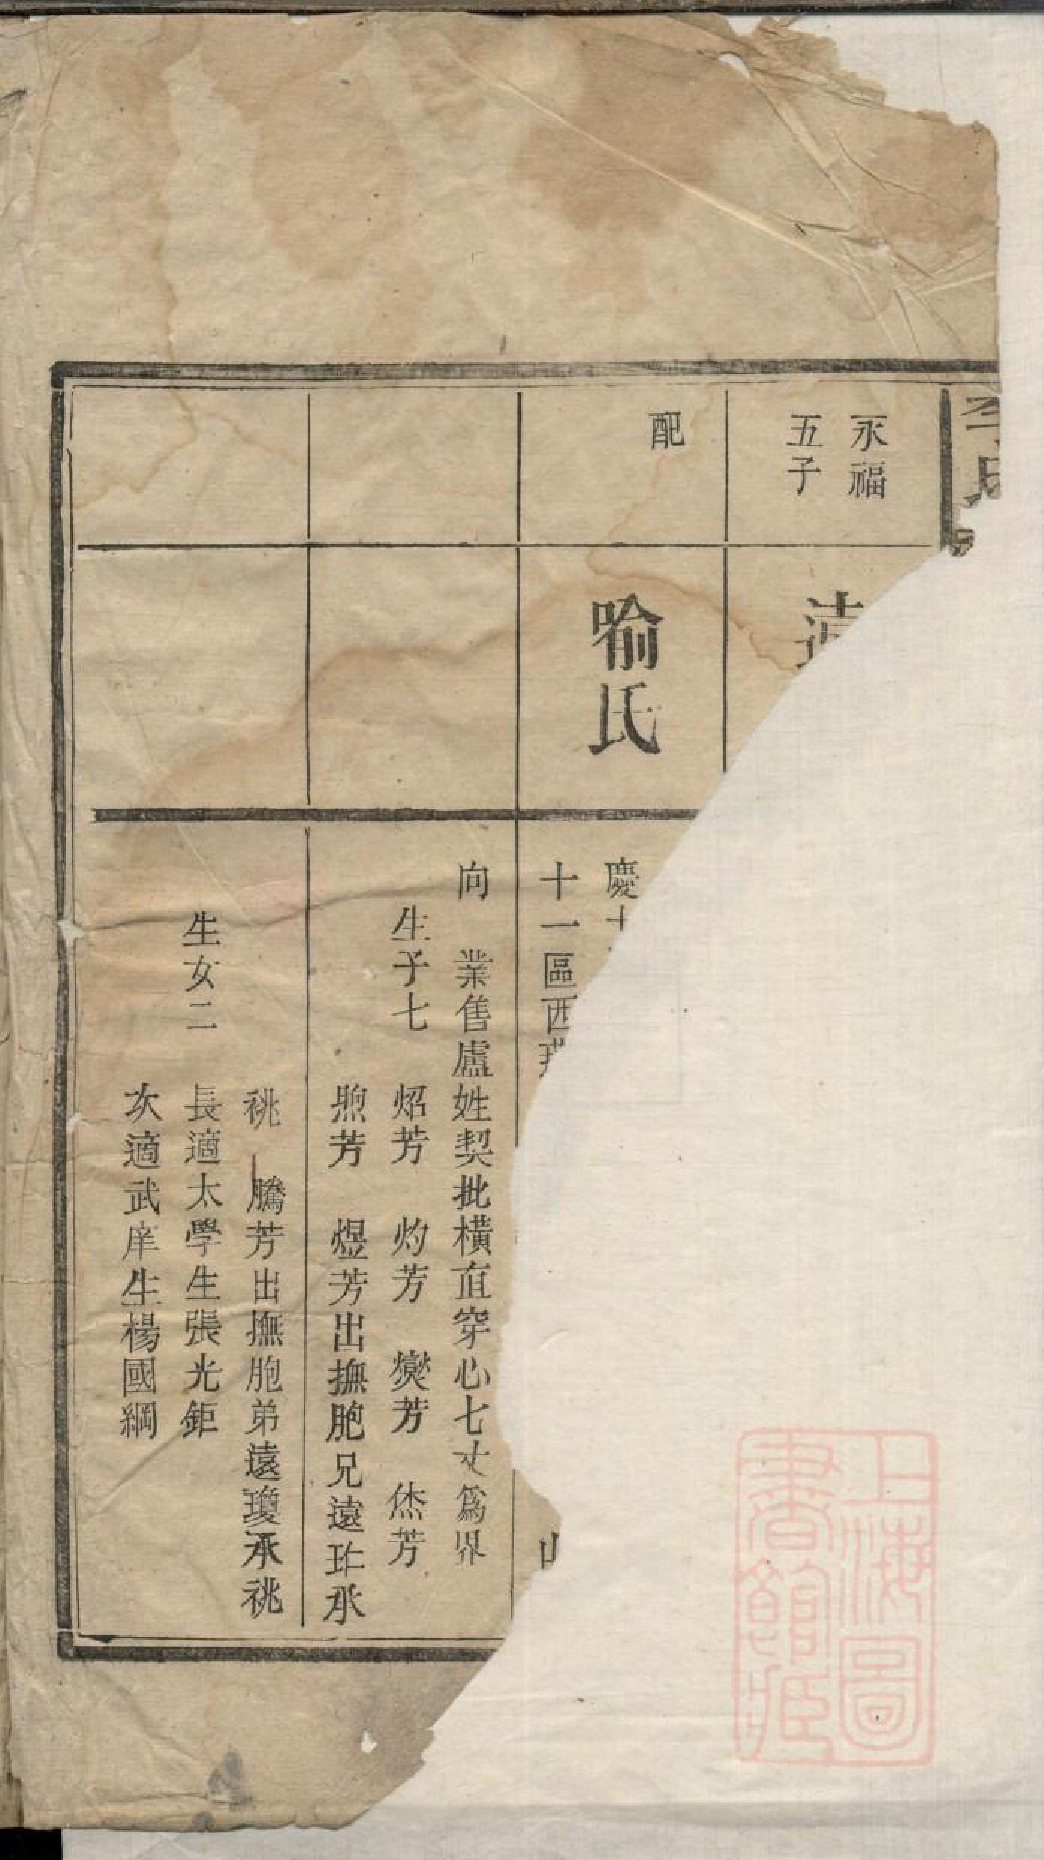 李氏
永福
五子
遠
配
喻氏
慶十
十一區西
向 業售盧姓契批橫直穿心七丈爲界
生子七 炤芳 灼芳 爕芳 烋芳
煦芳 煜芳出撫胞兄遠玝承
祧 騰芳出撫胞弟遠瓊承祧
生女二 長適太學生張光鉅
次適武庠生楊國綱
上海圖
書館藏